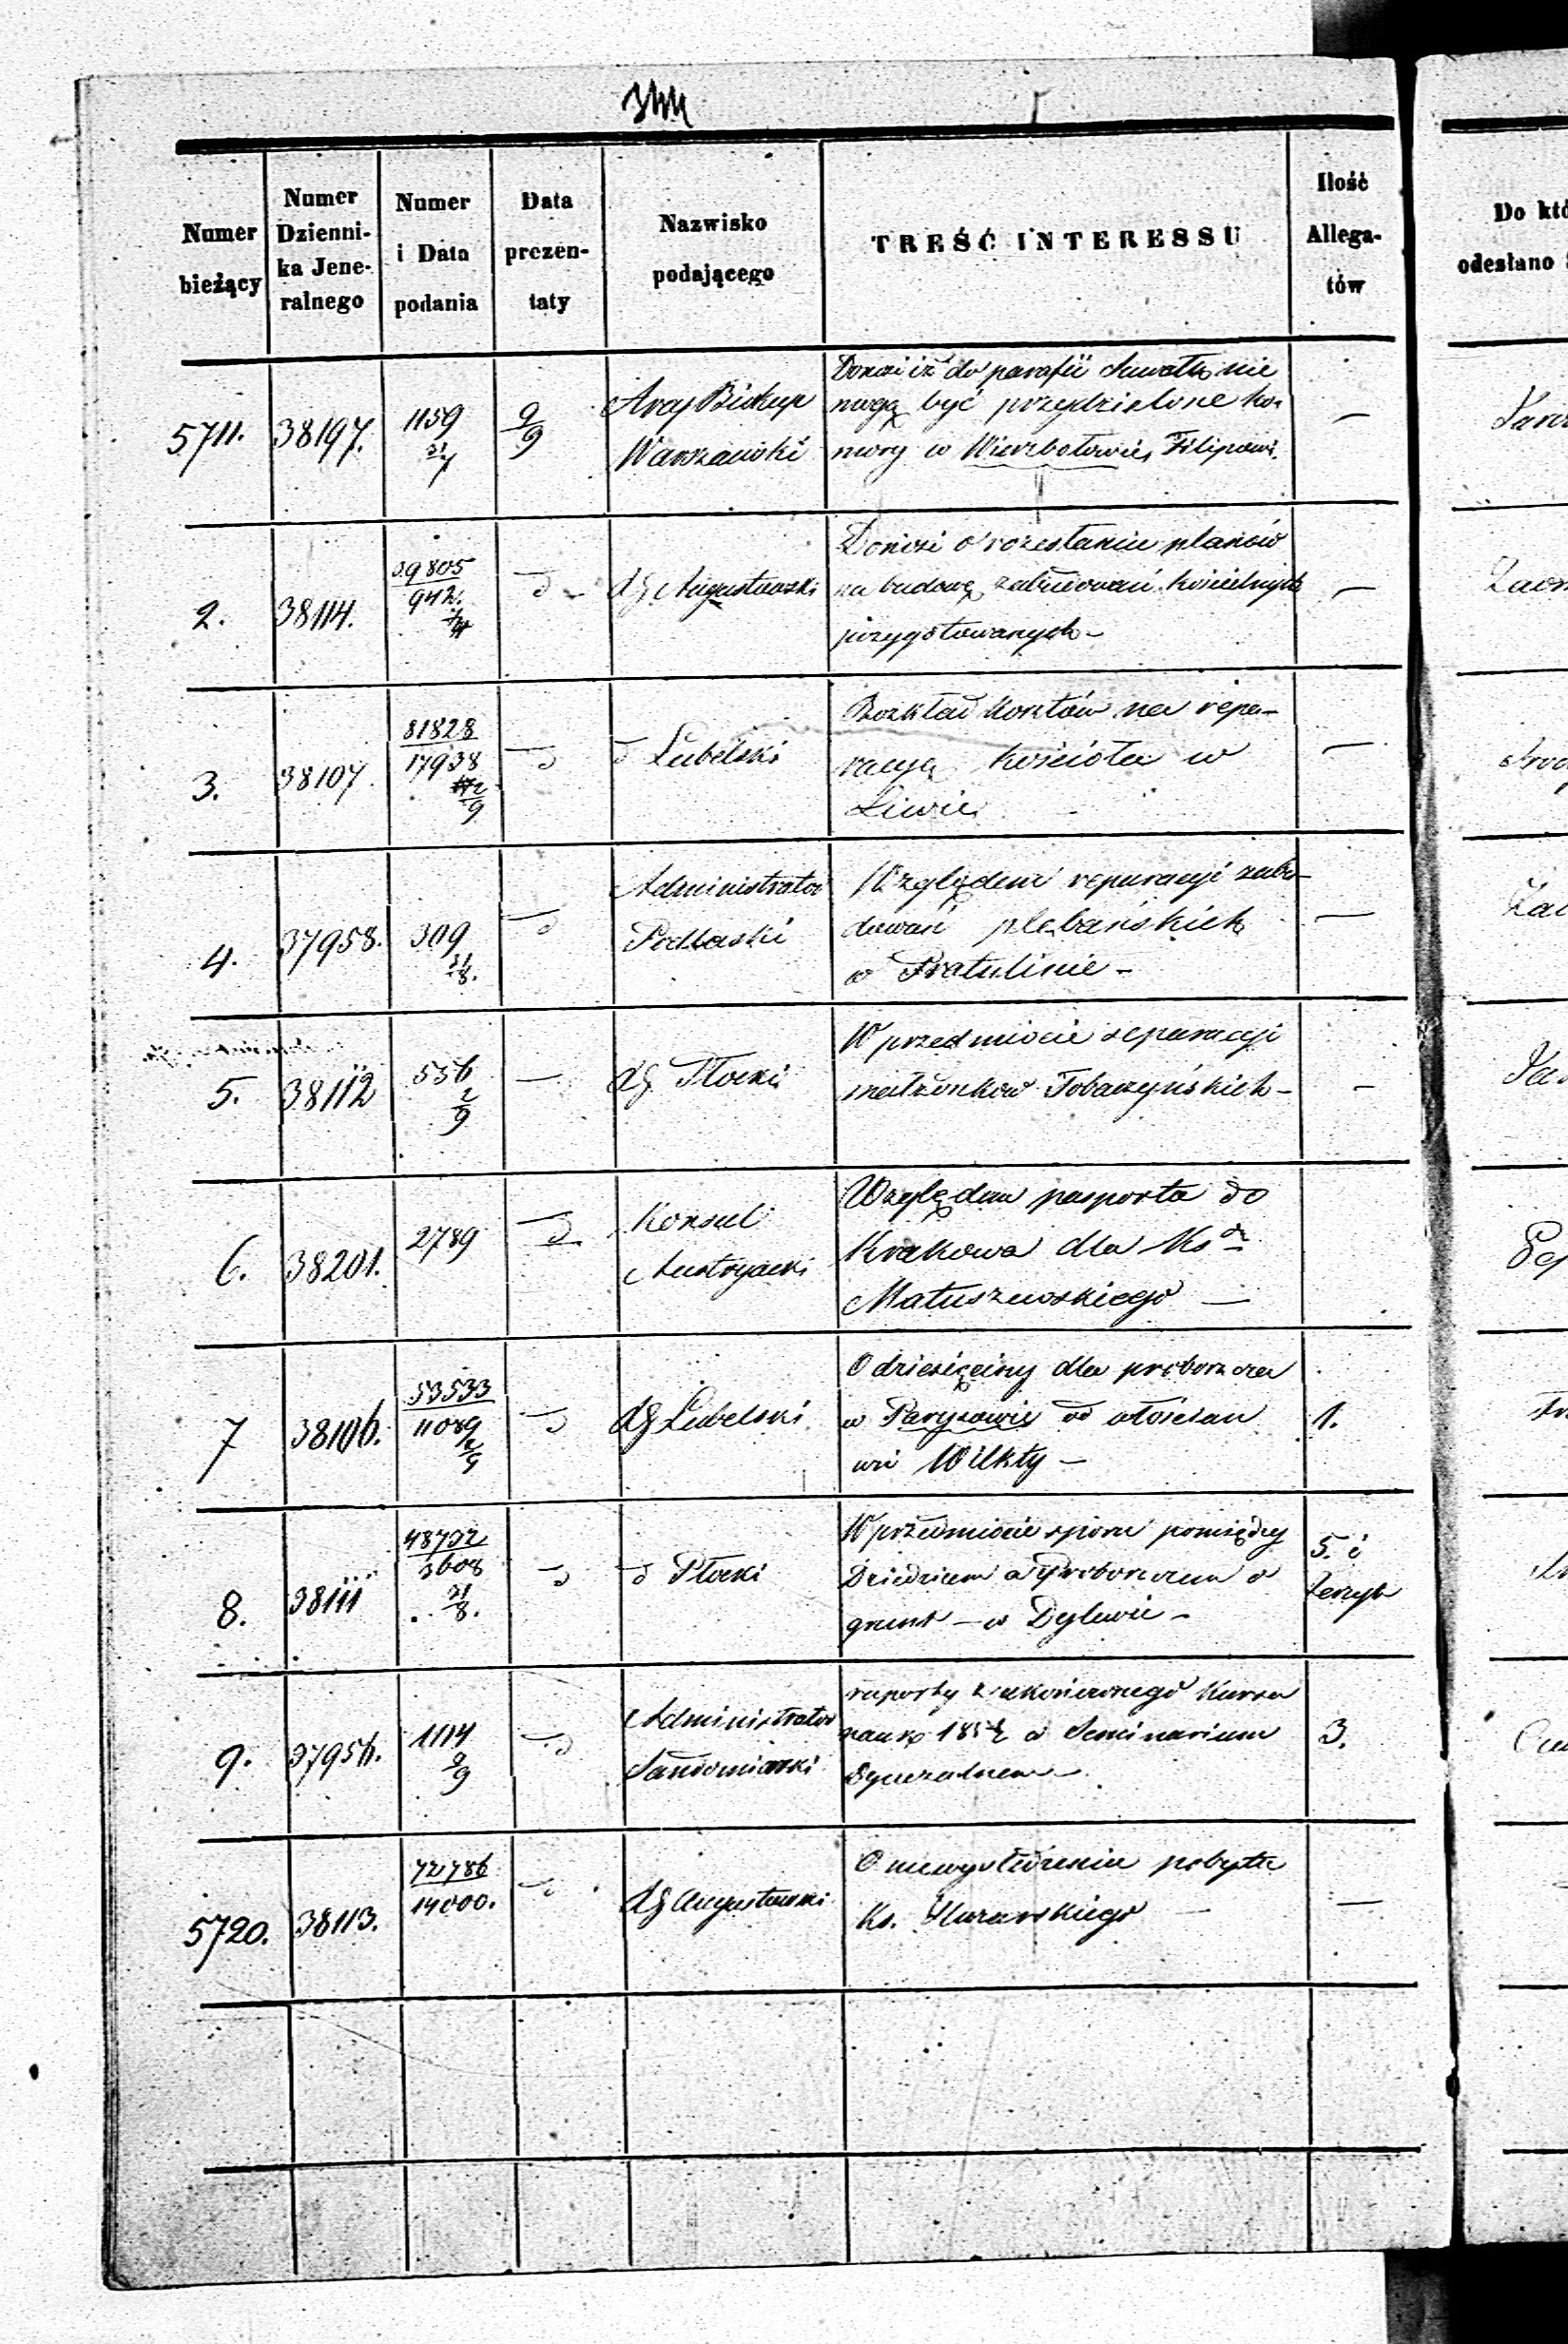 Numer bieżący
Numer Dzienni-ka Jene-ralnego
Numer i Data podania
Data prezen-taty
Nazwisko podającego
TREŚĆ INTERESSU
Ilość Allega-tów
Do któ
odesłano
5711. 38197. 1159 9/9
Arcy Biskup
Warszawski
Donosi iż do parafii Suwałk nie
mogą być przydzielone ko-
mory w Wierzbołowie, Filipowi.
—
2. 38114. 39805 942.
RG Augustowski
Donosi o rozesłaniu planów
na budowę zabudowań kościelnych
przygotowanych -
—
3. 38107. 81828 17938
d Lubelski
Rozkład kosztów na repa-
racyą kościoła w
Liwie
—
4. 37958. 309 31/8.
Administrator
Podlaski
Względem reparacyi zabu-
dowań plebańskich
w Pratulinie -
—
5. 38112 536 2/9
RG Płocki
W przedmiocie separacyi
małżonków Tobaczyńskich -
-
6. 38201. 2789
Konsul
Austryacki
Względem pasportu do
Krakowa dla Ks
Matuszewskiego —
7 38106. 53533 11089 2/9
RG Lubelski
O dziesięciny dla proboszcza
w Parysowie od włościan
wsi Wilkty -
1.
8. 38111 48732 3608 31/8.
d Płocki
W przedmiocie sporu pomiędzy
Dziedzicem a Proboszczem o
grunt - w Dylewie -
5. i
zeszyt
9. 37956. 1114 2/9
Administrator
Sandomierski
raporty z ukończonego kursu
nauk 185 w Seminarium
Dyecezalnem -
3.
5720. 38113. 72786 14000.
RG Augustowski
O niewyśledzeniu pobytu
Ks. Żurawskiego
—